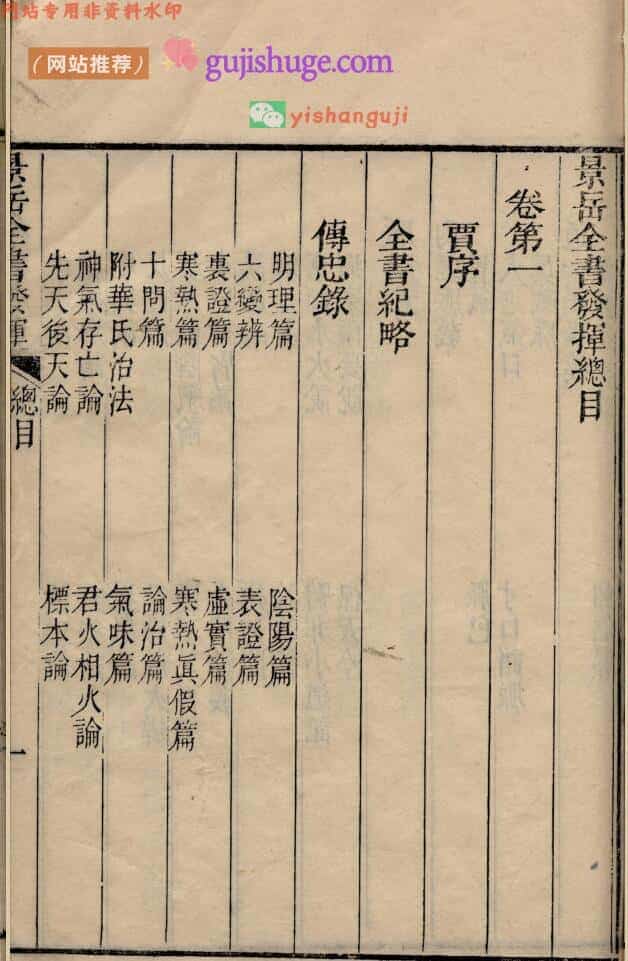 网站专用非资料水印
（网站推荐）
gujishuge.com
yishanguji
景岳全書發揮總目
卷第一
賈序
全書紀略
傳忠錄
明理篇 陰陽篇
六變辨 表證篇
裏證篇 虛實篇
寒熱篇 寒熱眞假篇
十問篇 論治篇
附華氏治法 氣味篇
神氣存亡論 君火相火論
先天後天論 標本論
景岳全書發揮 總目 一